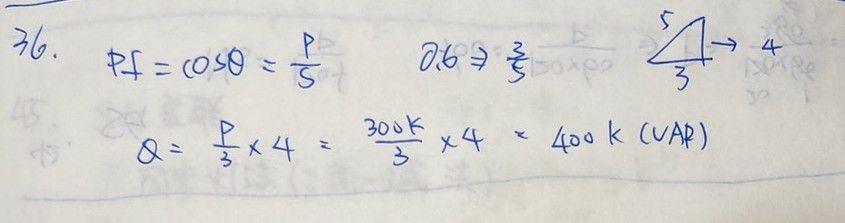 36. Pf = cosθ = P/S 0.6 ⇒ 3/5 5 3 → 4
Q = P/3 × 4 = 300K/3 × 4 = 400k (VAR)